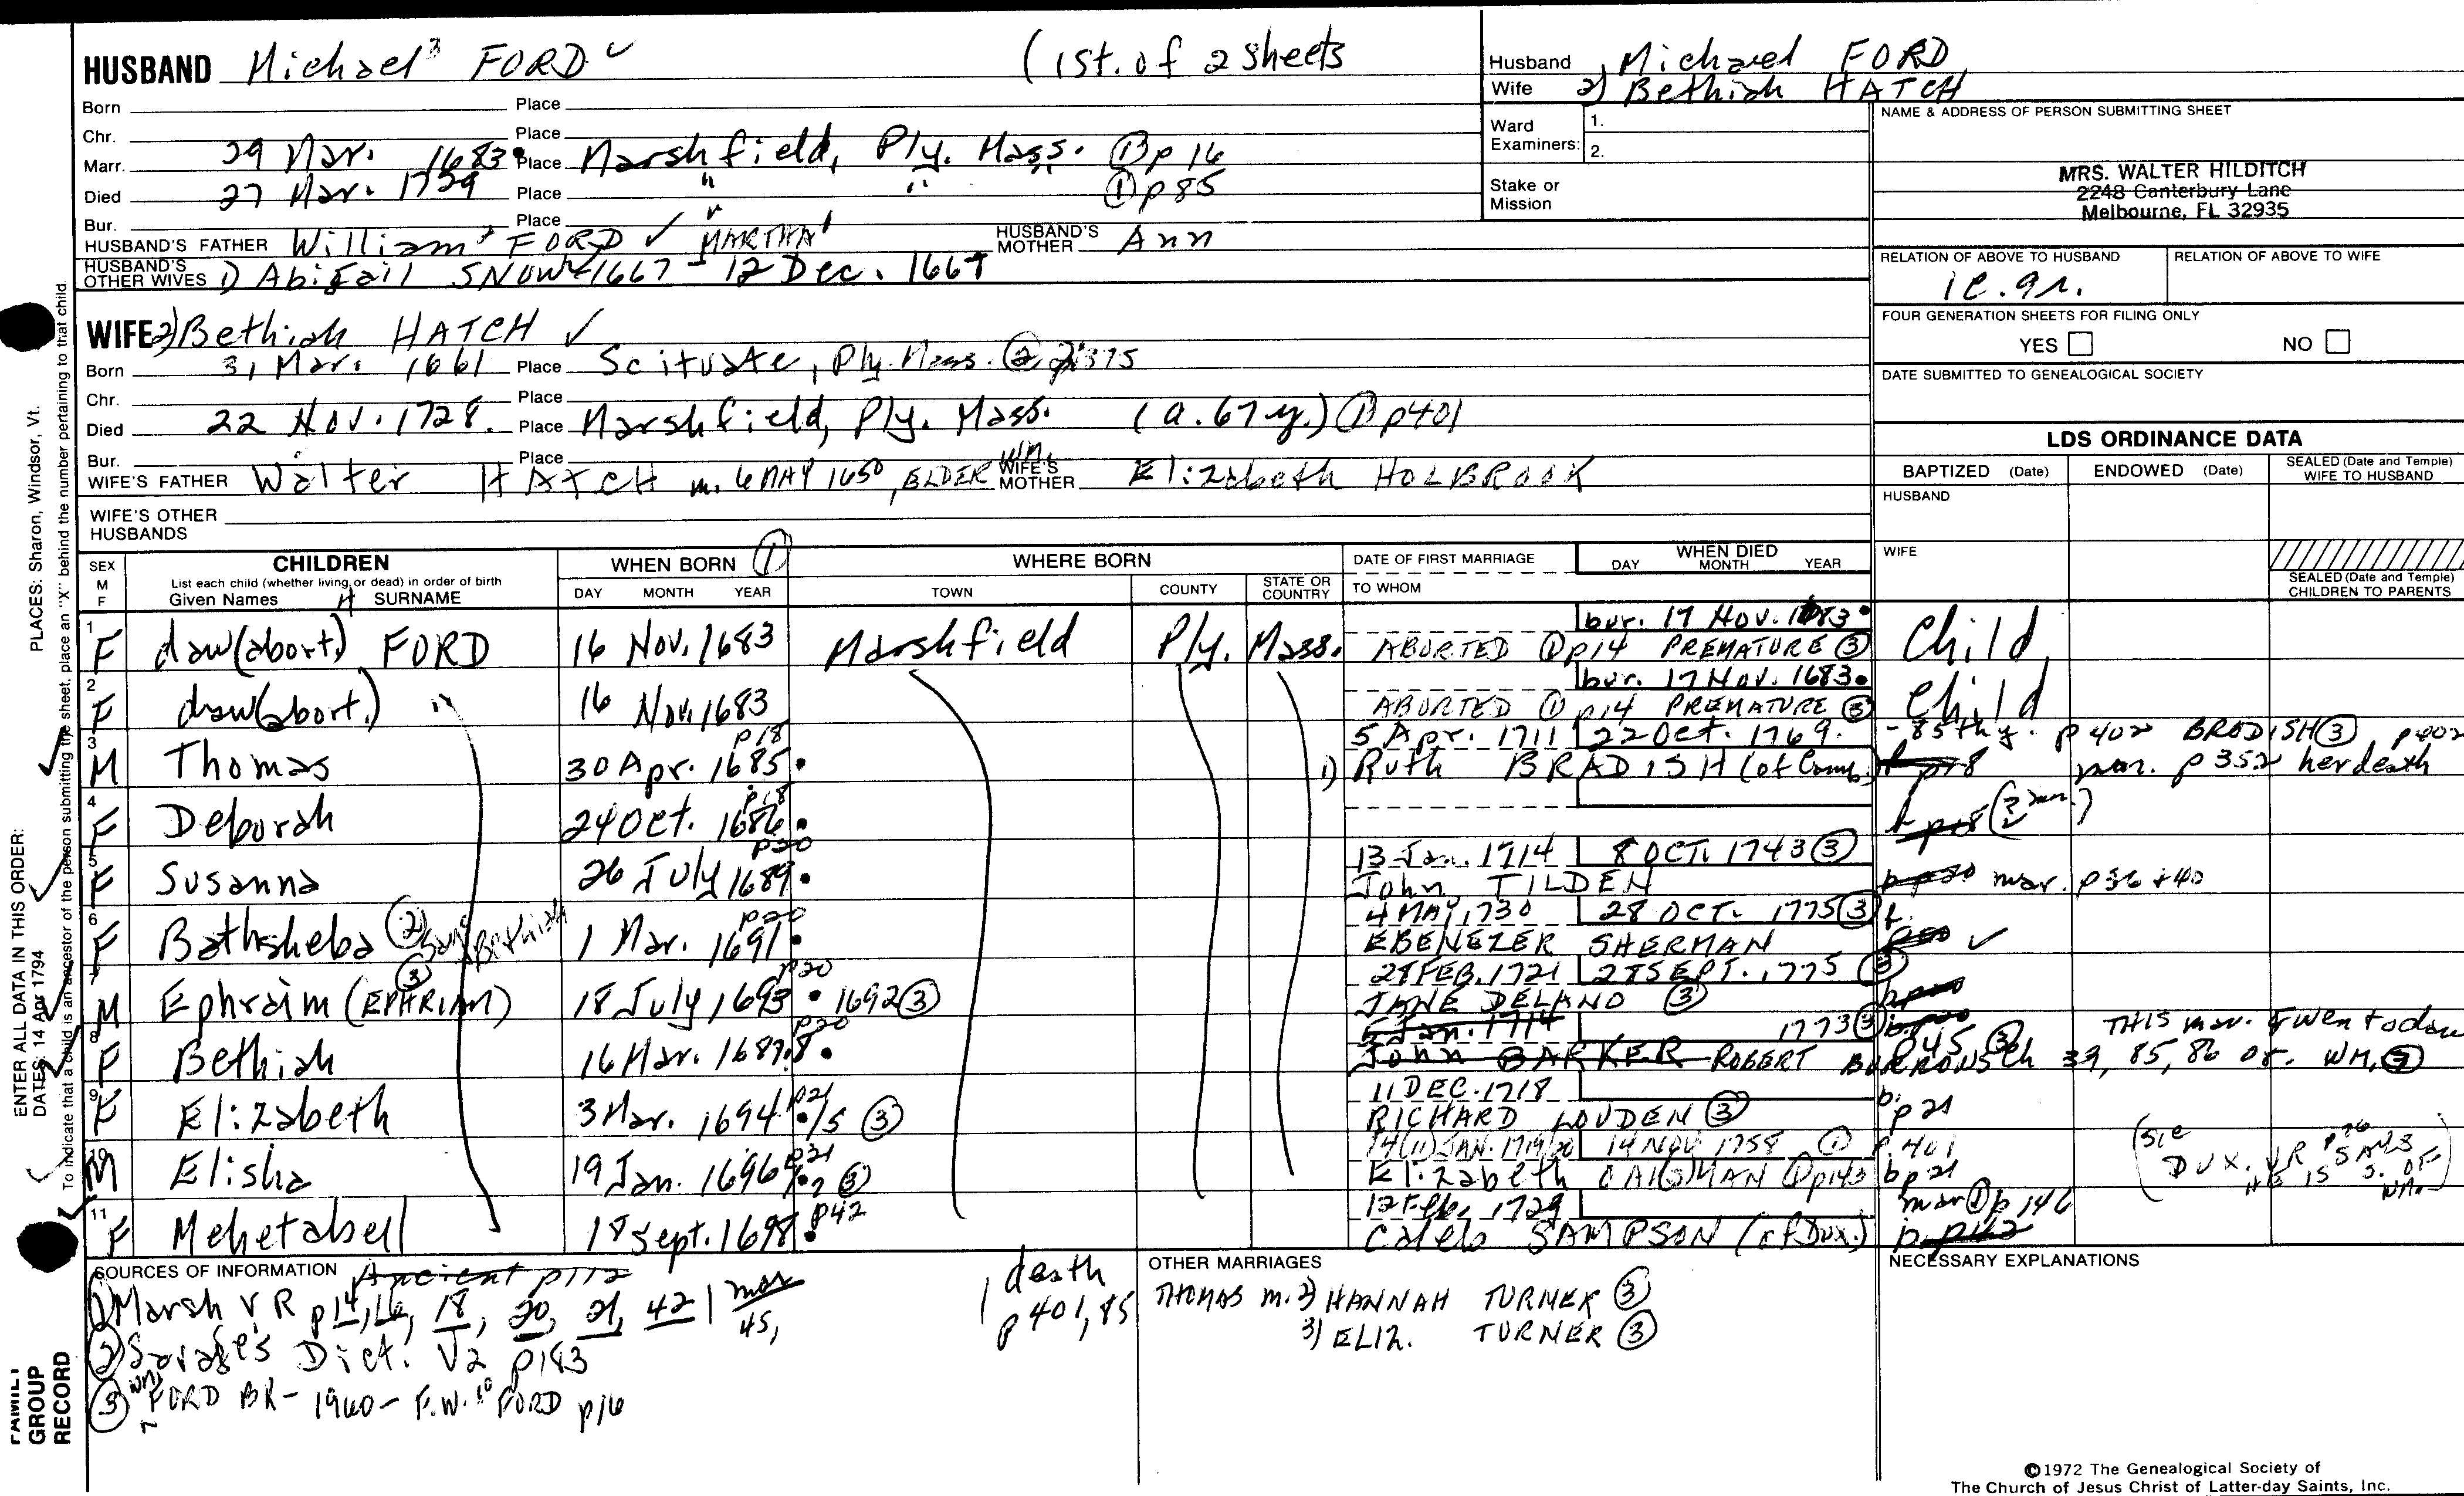 HUSBAND Michael³ FORD ✓ (1st. of 2 sheets
Born Place
Chr. Place
Marr. 29 Mar. 1683 Place Marshfield, Ply. Mass. ① p 16
Died 27 Mar. 1729 Place " " ① p 85
Bur. Place
HUSBAND'S FATHER William² FORD ✓ MARTHA HUSBAND'S MOTHER Ann
HUSBAND'S OTHER WIVES 1) Abigail SNOW 1667 - 12 Dec. 1667
WIFE 2) Bethiah HATCH ✓
Born 31 Mar. 1661 Place Scituate, Ply. Mass. ② 375
Chr. Place
Died 22 Nov. 1728. Place Marshfield, Ply. Mass. (a. 67 y.) ① p401
Bur. Place
WIFE'S FATHER Walter HATCH m. 6 MAY 1650, ELDER WM. WIFE'S MOTHER Elizabeth HOLBROOK
WIFE'S OTHER
HUSBANDS
Husband Michael FORD
Wife 2) Bethiah HATCH
Ward Examiners: 1.
2.
Stake or Mission
NAME & ADDRESS OF PERSON SUBMITTING SHEET
MRS. WALTER HILDITCH
2248 Canterbury Lane
Melbourne, FL 32935
RELATION OF ABOVE TO HUSBAND RELATION OF ABOVE TO WIFE
FOUR GENERATION SHEETS FOR FILING ONLY
YES NO
DATE SUBMITTED TO GENEALOGICAL SOCIETY
LDS ORDINANCE DATA
BAPTIZED (Date) ENDOWED (Date) SEALED (Date and Temple) WIFE TO HUSBAND
HUSBAND
WIFE
SEALED (Date and Temple) CHILDREN TO PARENTS
SEX M F CHILDREN List each child (whether living or dead) in order of birth Given Names SURNAME
WHEN BORN ① DAY MONTH YEAR
WHERE BORN TOWN COUNTY STATE OR COUNTRY
DATE OF FIRST MARRIAGE TO WHOM
WHEN DIED DAY MONTH YEAR
bur. 17 Nov. 1683
1 F daw (abort.) FORD 16 Nov. 1683 Marshfield Ply. Mass. ABORTED ① p14 PREMATURE ③ Child
bur. 17 Nov. 1683
2 F daw (abort.) " 16 Nov. 1683 ABORTED ① p14 PREMATURE ③ Child
p18 5 Apr. 1711 22 Oct. 1769. - 85th y. p 402 BRODISH ③
3 M Thomas 30 Apr. 1685 1) Ruth BRADISH (of Camb.) mar. p 352 her death
p18
4 F Deborah 24 Oct. 1686
p20 13 Jan. 1714 8 OCT. 1743 ③
5 F Susanna 26 July 1689 John TILDEN mar. p36 + 40
p20 4 MAY 1730 28 OCT. 1775 ③
6 F Bathsheba ② says Bethiah 1 Mar. 1691 EBENEZER SHERMAN ✓
p20 28 FEB. 1721 28 SEPT. 1775 ③
7 M Ephraim ③ (EPHRIAM) 18 July 1693 1692 ③ JANE DELANO ③
p20 5 Jan. 1714 1773 ③ p45 ③ THIS mar. given to dau
8 F Bethiah 16 Mar. 1687.8 John BARKER ROBERT BURROWS ch 39, 85, 86 of. WM. ③
p21 11 DEC. 1718 b.
9 F Elizabeth 3 Mar. 1694/5 ③ RICHARD LOUDEN ③ p 21
p21 14 (11) JAN. 1719/20 14 NOV 1758 ① p. 401
10 M Elisha 19 Jan. 1696/7 ③ Elizabeth OAK(S)MAN ① p143 b p21
(sic DUX. VR p SAYS HE IS S. OF WM.)
p42 12 Feb. 1729 mar ① p 146
11 F Mehetabell 18 Sept. 1698 Caleb SAMPSON (of Dux.) b. p42
SOURCES OF INFORMATION Ancient p112
① Marsh V R p 14, 16, 18, 20, 21, 42 | mar 45, | death p 401, 85
② Savage's Dict. V2 p183
③ WM FORD BR- 1960- F.W. FORD p16
OTHER MARRIAGES
THOMAS m. 2) HANNAH TURNER ③
3) ELIZ. TURNER ③
NECESSARY EXPLANATIONS
©1972 The Genealogical Society of
The Church of Jesus Christ of Latter-day Saints, Inc.
ENTER ALL DATA IN THIS ORDER:
DATES: 14 Apr 1794
PLACES: Sharon, Windsor, Vt.
To indicate that a child is an ancestor of the person submitting the sheet, place an "X" behind the number pertaining to that child.
FAMILY
GROUP
RECORD